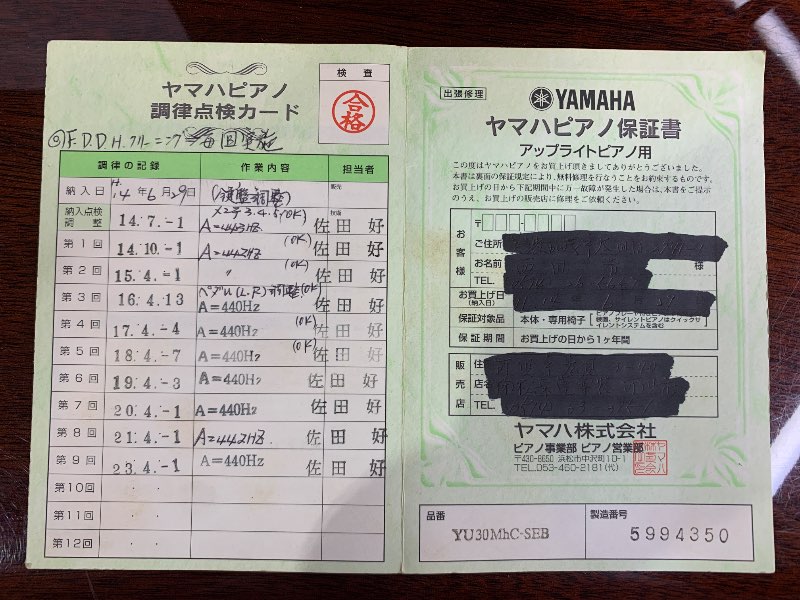 ヤマハピアノ
調律点検カード
検査
合格
F.D.D.H.クリーニング 毎回実施
調律の記録 作業内容 担当者
納入日 H.14年6月29日 (鍵盤調整) 販売
納入点検調整 14.7.-1 A=443HZ (OK) 技術 佐田 好
第1回 14.10.-1 A=442HZ (OK) 佐田 好
第2回 15.4.-1 〃 (OK) 佐田 好
第3回 16.4.13 ペダル(L.R)調整(OK) A=440Hz 佐田 好
第4回 17.4.-4 A=440Hz (OK) 佐田 好
第5回 18.4.-7 A=440Hz (OK) 佐田 好
第6回 19.4.-3 A=440Hz 佐田 好
第7回 20.4.-1 A=440Hz 佐田 好
第8回 21.4.-1 A=442HZ. 佐田 好
第9回 23.4.-1 A=440Hz 佐田 好
第10回 ・ ・
第11回 ・ ・
第12回 ・ ・
出張修理
YAMAHA
ヤマハピアノ保証書
アップライトピアノ用
この度はヤマハピアノをお買上げ頂きましてありがとうございました。
本書は裏面の保証規定により、無料修理を行なうことをお約束するものです。
お買上げの日から下記期間中に万一故障が発生した場合は、本書をご提示
のうえ、お買上げの販売店に修理をご依頼ください。
お客様
〒
ご住所
お名前 様
TEL
お買上げ日
(納入日)
保証対象品 本体・専用椅子
装置、サイレントピアノはクイックサ
イレントシステムを含む
保証期間 お買上げの日から1ヶ年間
販売店
住
店名
TEL
ヤマハ株式会社
ピアノ事業部 ピアノ営業部
〒430-8650 浜松市中沢町10-1
TEL.053-460-2181(代)
品番 YU30MhC-SEB
製造番号 5994350